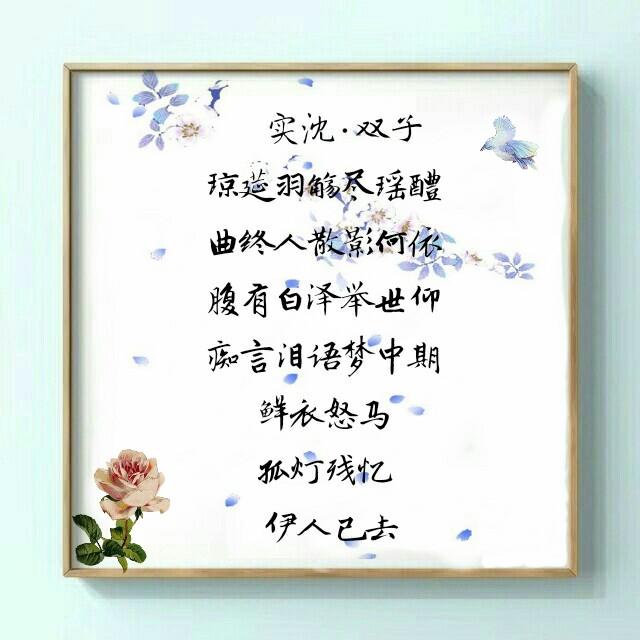 实沈·双子
琼筵羽觞尽瑶醴
曲终人散影何依
腹有白泽举世仰
痴言泪语梦中期
鲜衣怒马
孤灯残忆
伊人已去